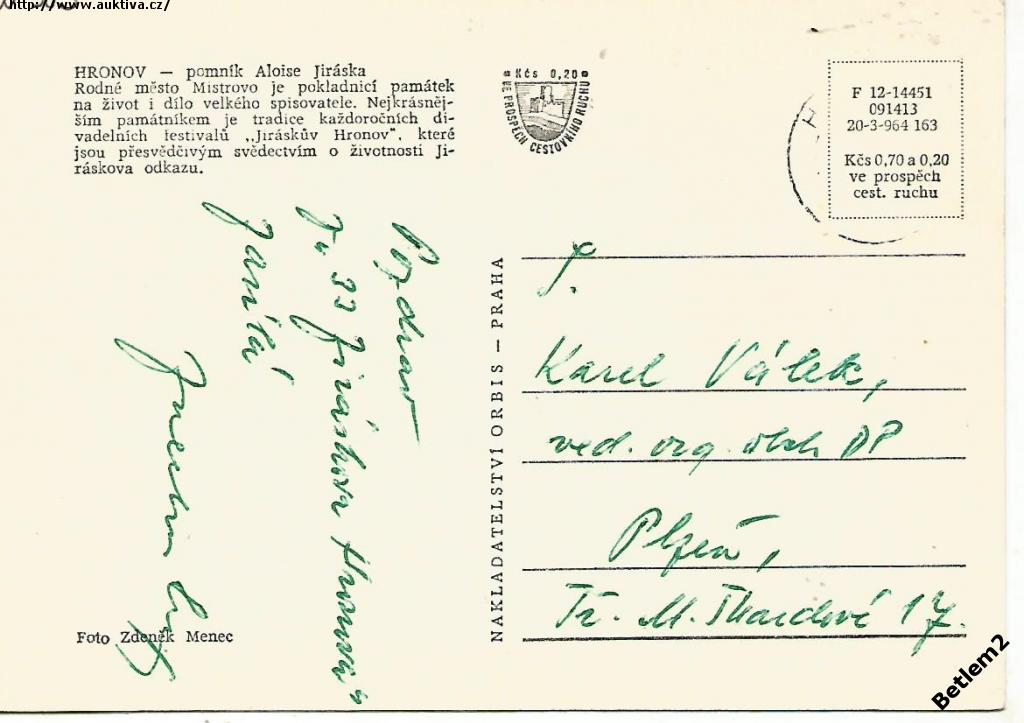 http://www.auktiva.cz/
HRONOV — pomník Aloise Jiráska
Rodné město Mistrovo je pokladnicí památek
na život i dílo velkého spisovatele. Nejkrásněj-
ším památníkem je tradice každoročních di-
vadelních festivalů „Jiráskův Hronov", které
jsou přesvědčivým svědectvím o životnosti Ji-
ráskova odkazu.
Kčs 0,20
VE PROSPĚCH CESTOVNÍHO RUCHU
F 12-14451
091413
20-3-964 163
Kčs 0,70 a 0,20
ve prospěch
cest. ruchu
Pozdrav
Jiráskova Hronova"
NAKLADATELSTVÍ ORBIS — PRAHA
S.
Karel Válek,
ved. org. DP
Plzeň,
Tř. M. 17.
Foto Zdeněk Menec
Betlem2